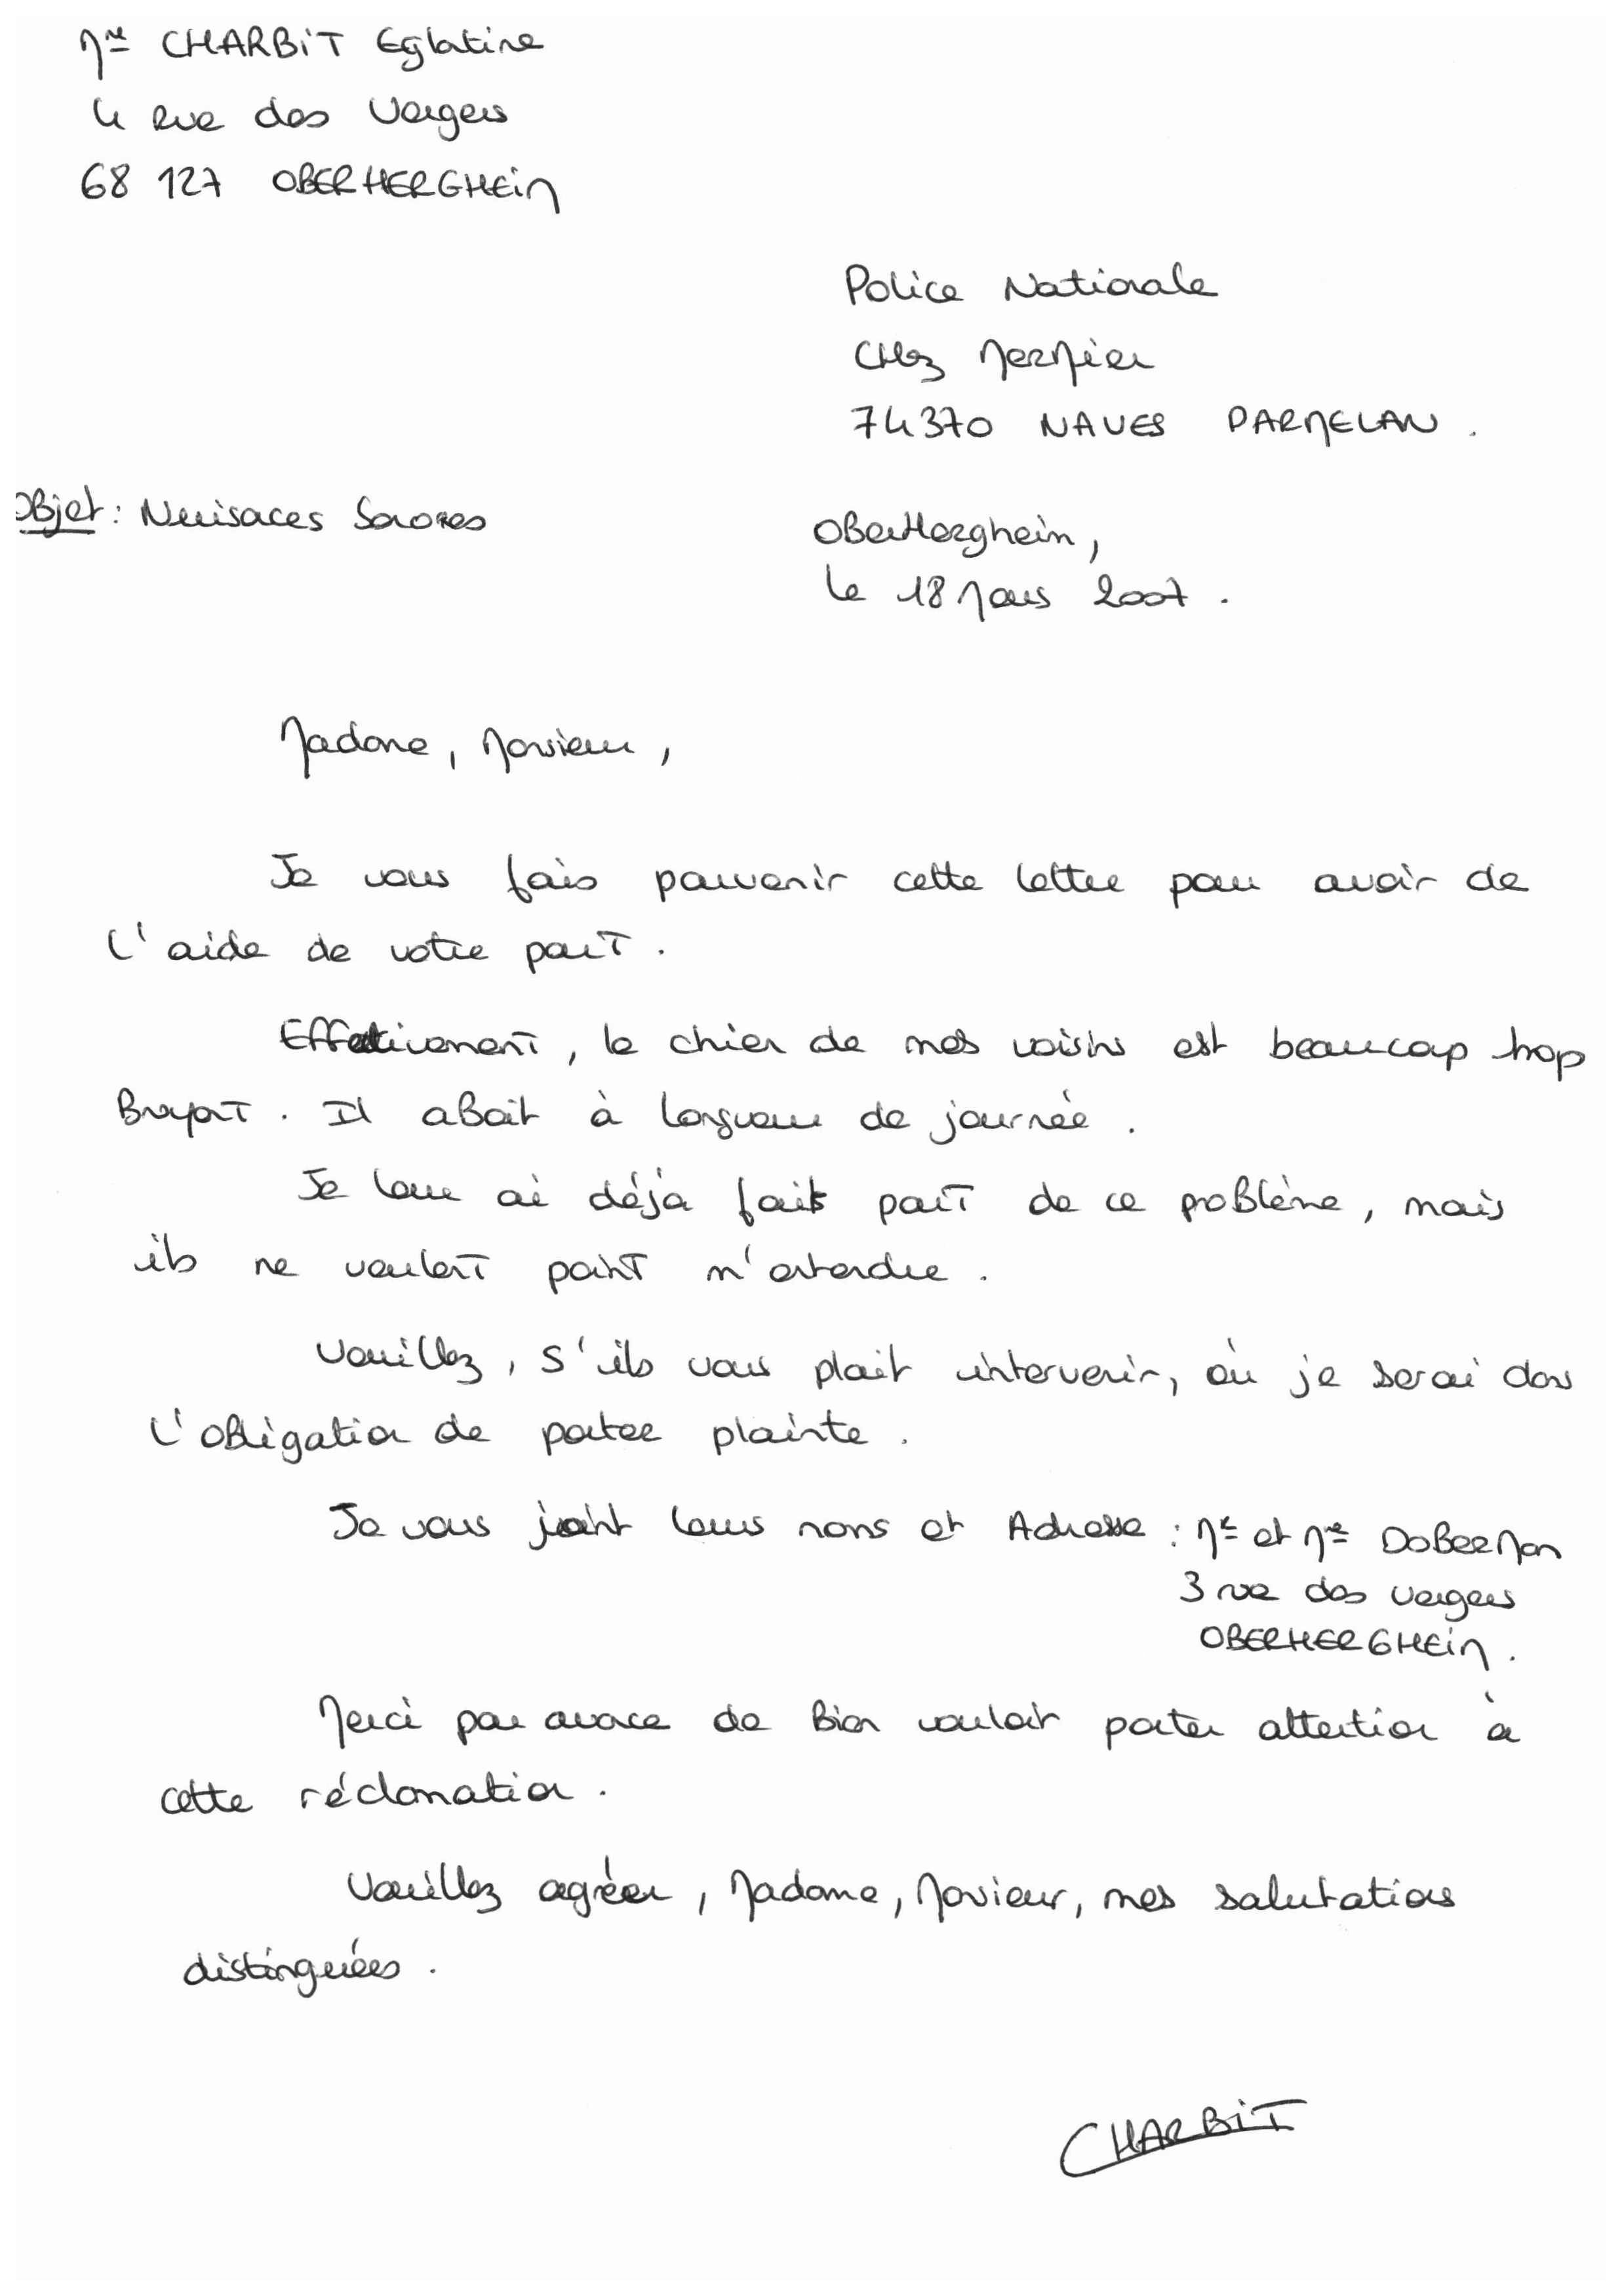 Mme CHARBIT Eglatine
4 Rue des Vergers
68 127 OBERHERGHEIM
Police Nationale
CHez MerMier
74370 NAVES PARMELAN.
Objet: Nuisaces Sonores
OberHergheim,
le 18 Mars 2007.
Madame, Monsieur,
Je vous fais parvenir cette lettre pour avoir de
l'aide de votre part.
Effectivement, le chien de mes voisins est beaucoup trop
Bruyant. Il aboit à longueur de journée.
Je leur ai déjà fait part de ce problème, mais
ils ne veulent point m'entendre.
Veuillez, s'ils vous plait intervenir, où je serai dans
l'obligation de porter plainte.
Je vous joint leurs noms et Adresse : Mr et Mme DOBerMan
3 rue des vergers
OBERHERGHEIM.
Merci par avance de Bien vouloir porter attention à
cette réclamation.
Veuillez agréer, Madame, Monsieur, mes salutations
distinguées.
CHARBIT